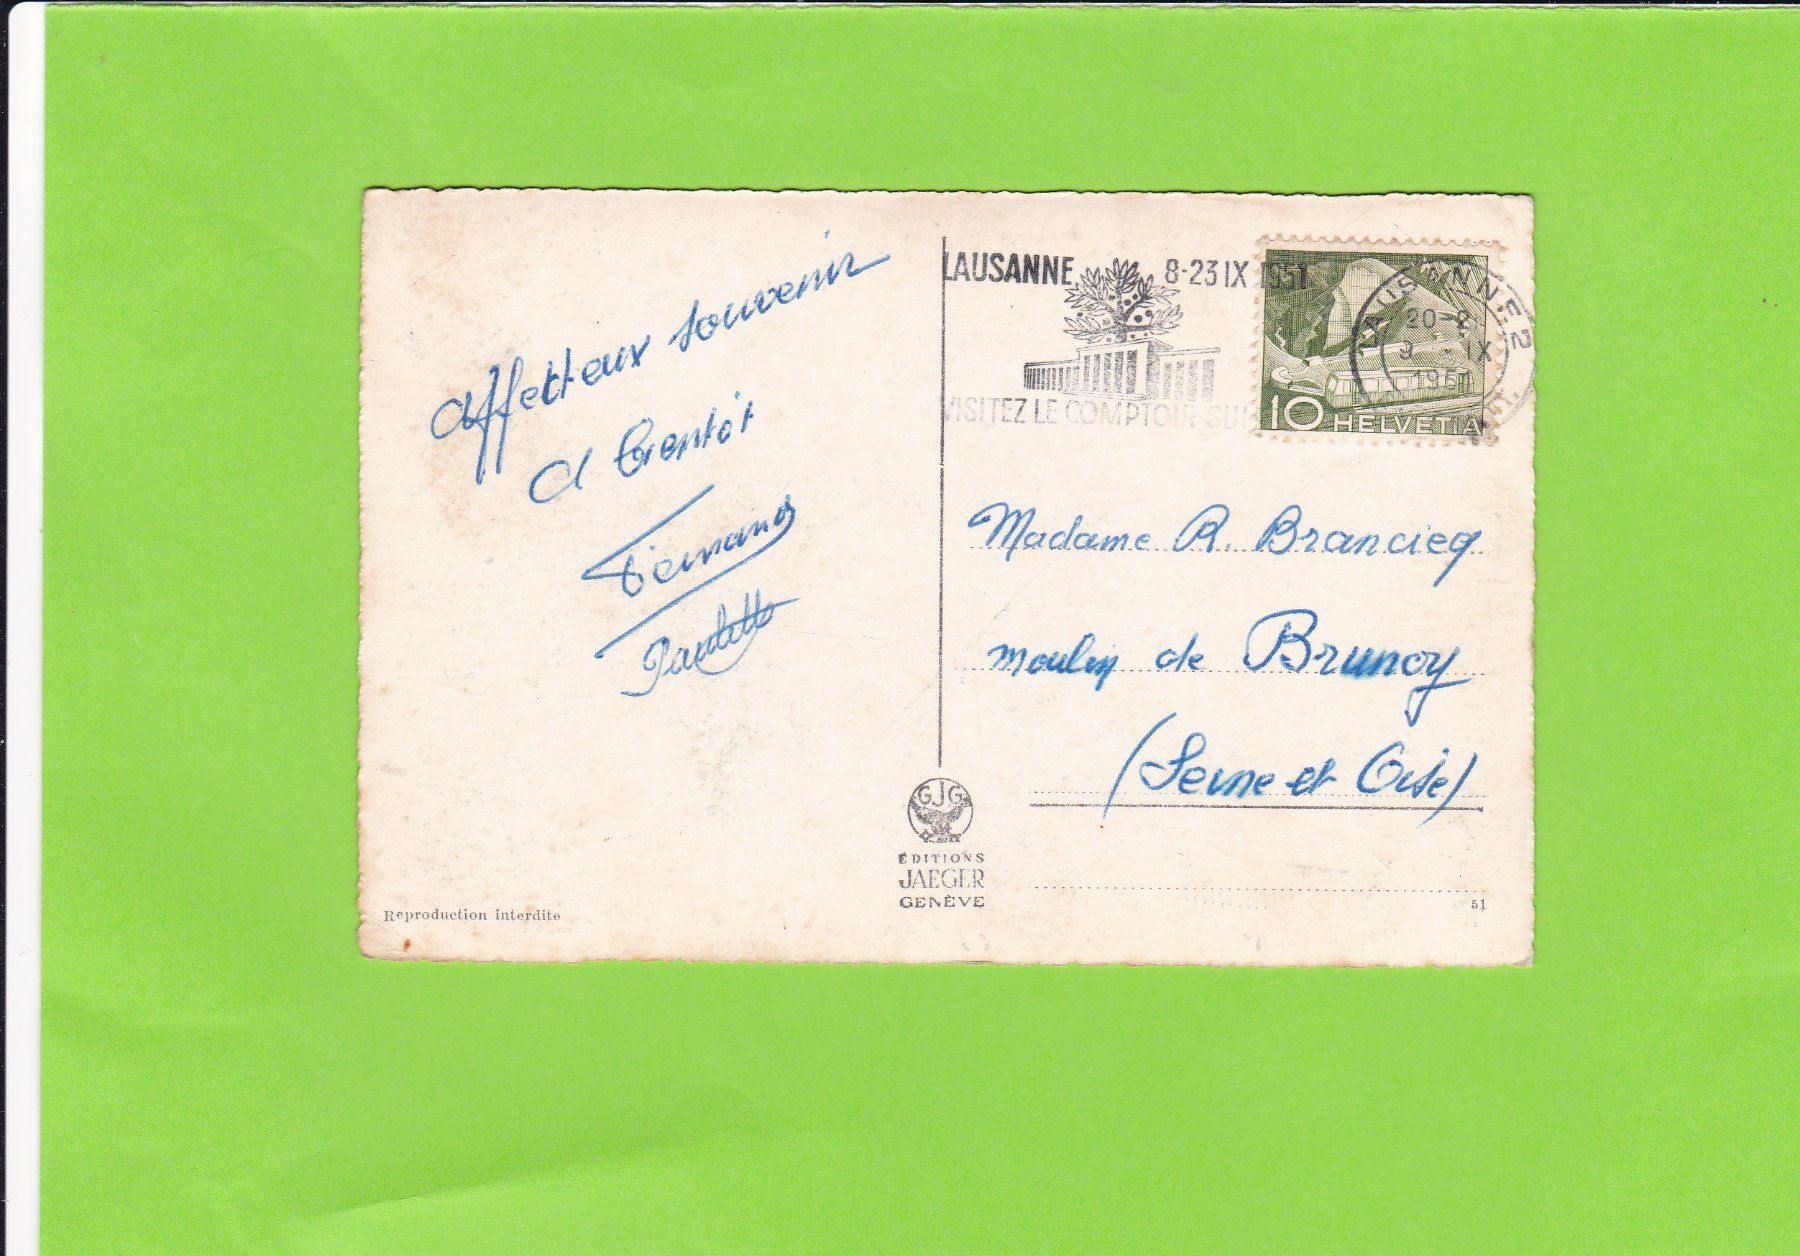 affectueux souvenir
a bientôt
Fernand
Paulette
LAUSANNE 8-23 IX 1951
VISITEZ LE COMPTOIR SUI
LAUSANNE 2
20-2
9 - IX
195
10 HELVETIA
Madame R. Brancieq
moulin de Brunoy
(Seine et Oise)
GJG
ÉDITIONS
JAEGER
GENÈVE
Reproduction interdite
51